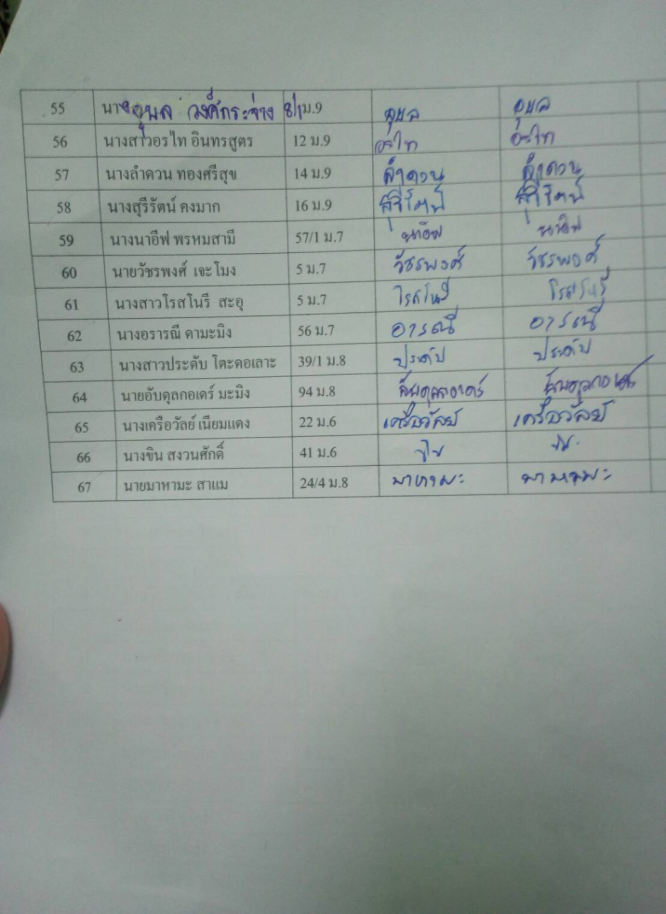 55 นางอุบล วงศ์กระจ่าง 8/1ม.9 อุบล อุบล
56 นางสาวอรไท อินทรสูตร 12 ม.9 อรไท อรไท
57 นางลำดวน ทองศรีสุข 14 ม.9 ลำดวน ลำดวน
58 นางสุรีรัตน์ คงมาก 16 ม.9 สุรีรัตน์ สุรีรัตน์
59 นางนาอีฟ พรหมสามี 57/1 ม.7 นาอีฟ นาอีฟ
60 นายวัชรพงศ์ เจะโมง 5 ม.7 วัชรพงศ์ วัชรพงศ์
61 นางสาวโรสโนรี สะอุ 5 ม.7 โรสโนรี โรสโนรี
62 นางอรารณี คามะมิง 56 ม.7 อารณี อารณี
63 นางสาวประดับ โตะคอเลาะ 39/1 ม.8 ประดับ ประดับ
64 นายอับดุลกอเดร์ มะมิง 94 ม.8 อับดุลกอเดร์ อับดุลกอเดร์
65 นางเครือวัลย์ เนียมแดง 22 ม.6 เครือวัลย์ เครือวัลย์
66 นางขิน สงวนศักดิ์ 41 ม.6
67 นายมาหามะ สาแม 24/4 ม.8 มาหามะ มาหามะ